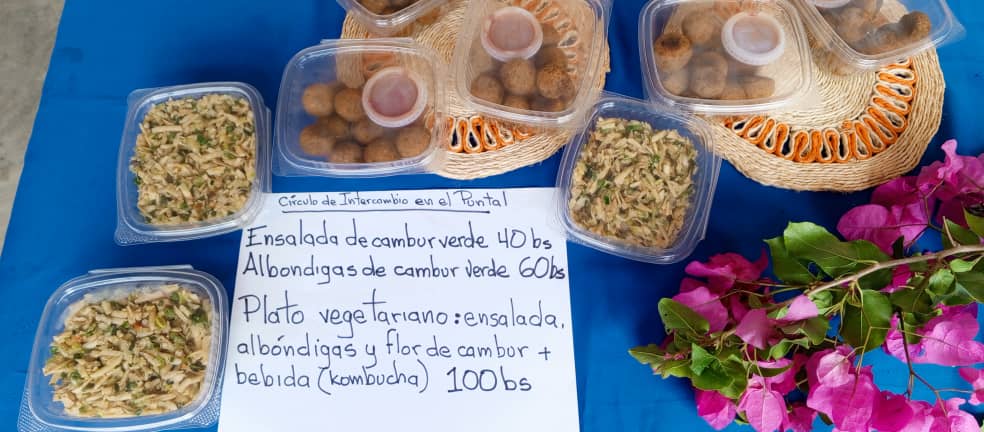 Círculo de Intercambio en el Puntal
Ensalada de cambur verde 40 bs
Albondigas de cambur verde 60bs
Plato vegetariano: ensalada,
albóndigas y flor de cambur +
bebida (kombucha) 100bs